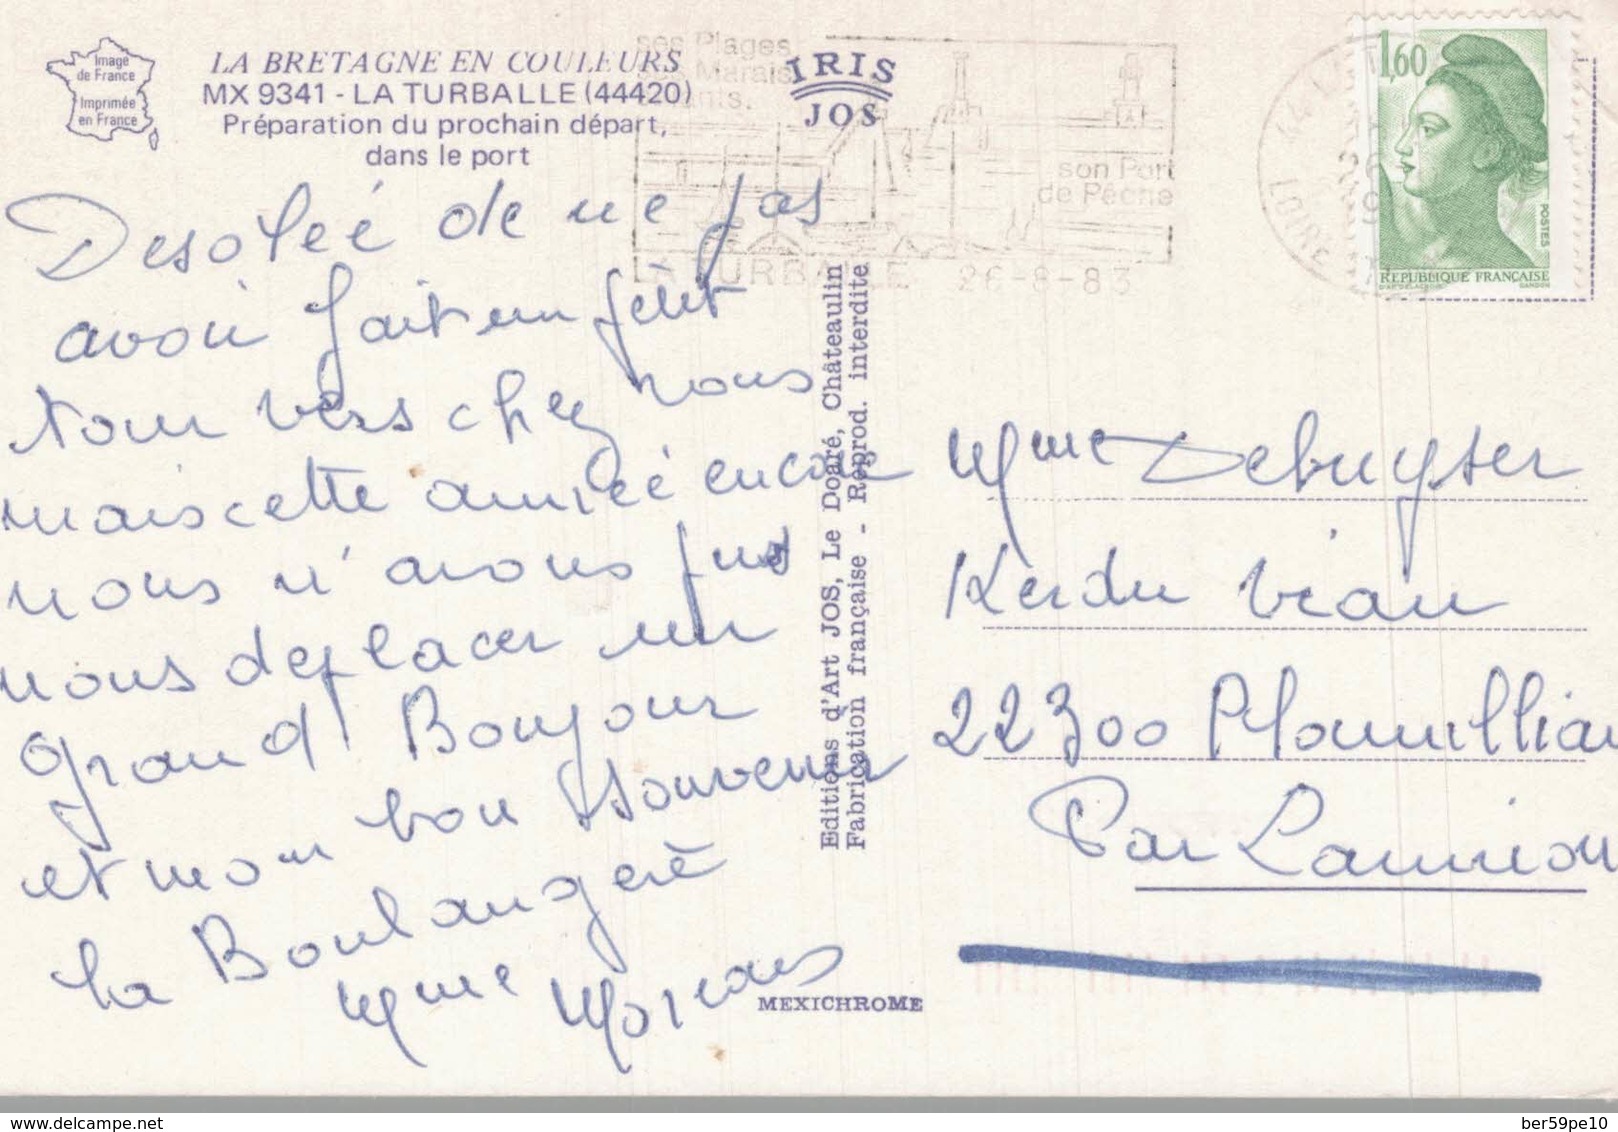 Image
de France
Imprimée
en France
LA BRETAGNE EN COULEURS
MX 9341 - LA TURBALLE (44420)
Préparation du prochain départ,
dans le port
IRIS
JOS
ses Plages
ses Marais
son Port
de Pêche
LA TURBALLE 26-8-83
44 LA
LOIRE
1,60
POSTES
REPUBLIQUE FRANÇAISE
Desolée de ne pas
avoir fait un petit
tour vers chez vous
mais cette année encore
nous n'avons pus
nous deplacer un
grand Bonjour
et mon bon souvenir
la Boulangere
Mme
Editions d'Art JOS, Le Doaré, Châteaulin
Fabrication française - Reprod. interdite
MEXICHROME
Mme Debuyser
Kerdu vian
22300 Ploumillian
Par Lannion
delcampe.net
ber59pe10